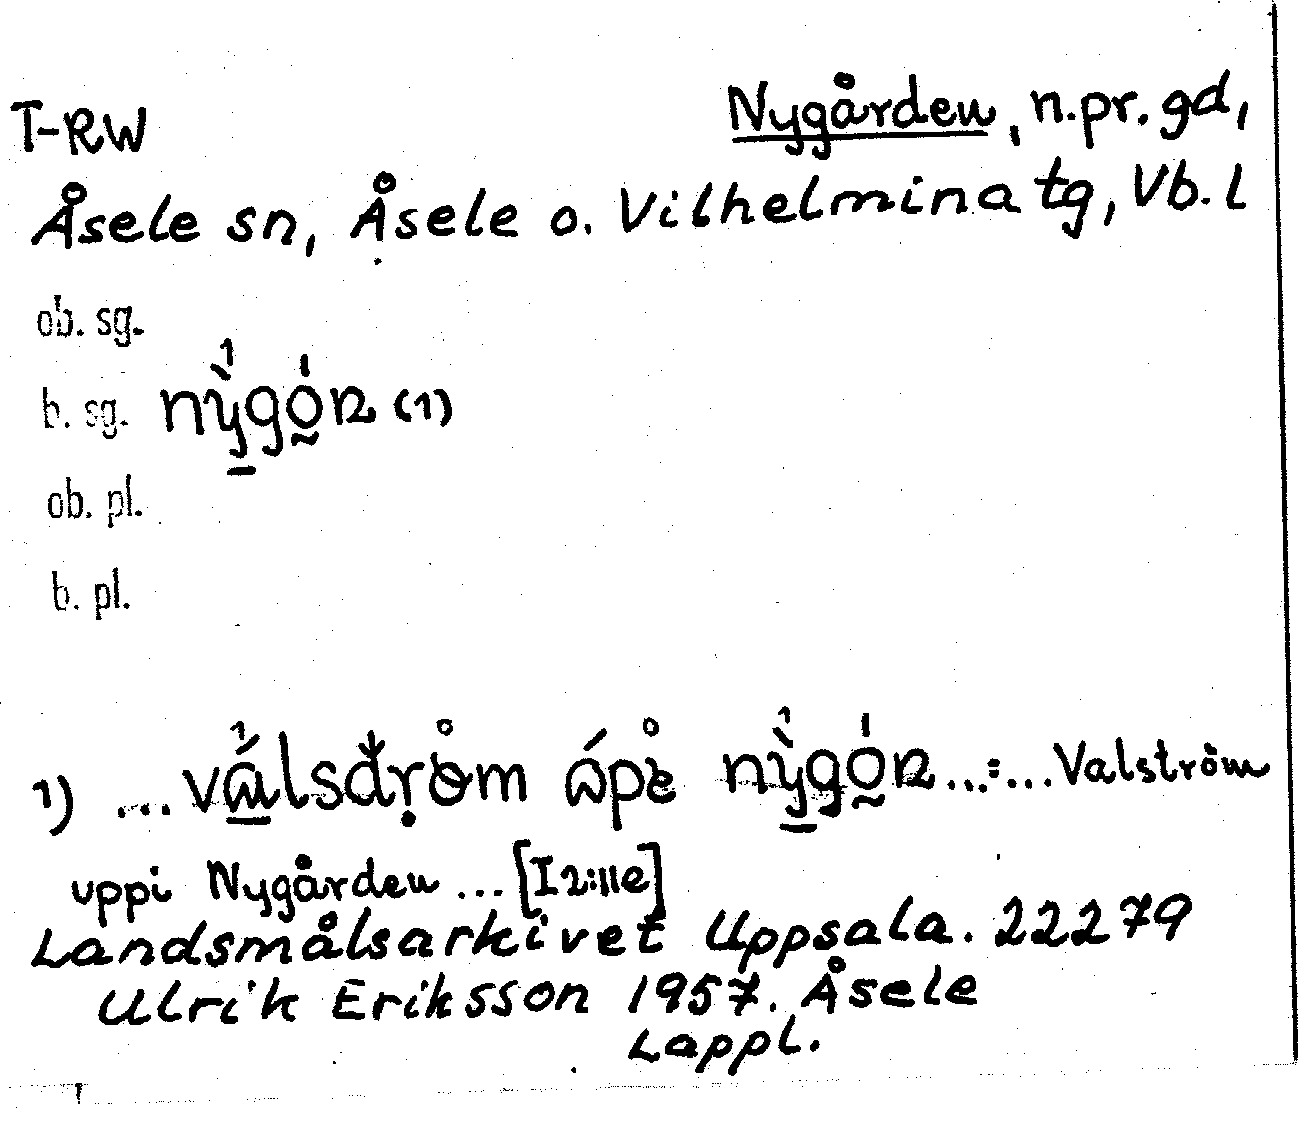 T-RW Nygården, n.pr. gd,
Åsele sn, Åsele o. Vilhelmina tg, Vb. l
ob. sg.
b. sg. (1)
ob. pl.
b. pl.
1) ... ...=... Valström
uppi Nygården ... [I 2:11e]
Landsmålsarkivet Uppsala. 22279
Ulrik Eriksson 1957. Åsele
Lappl.